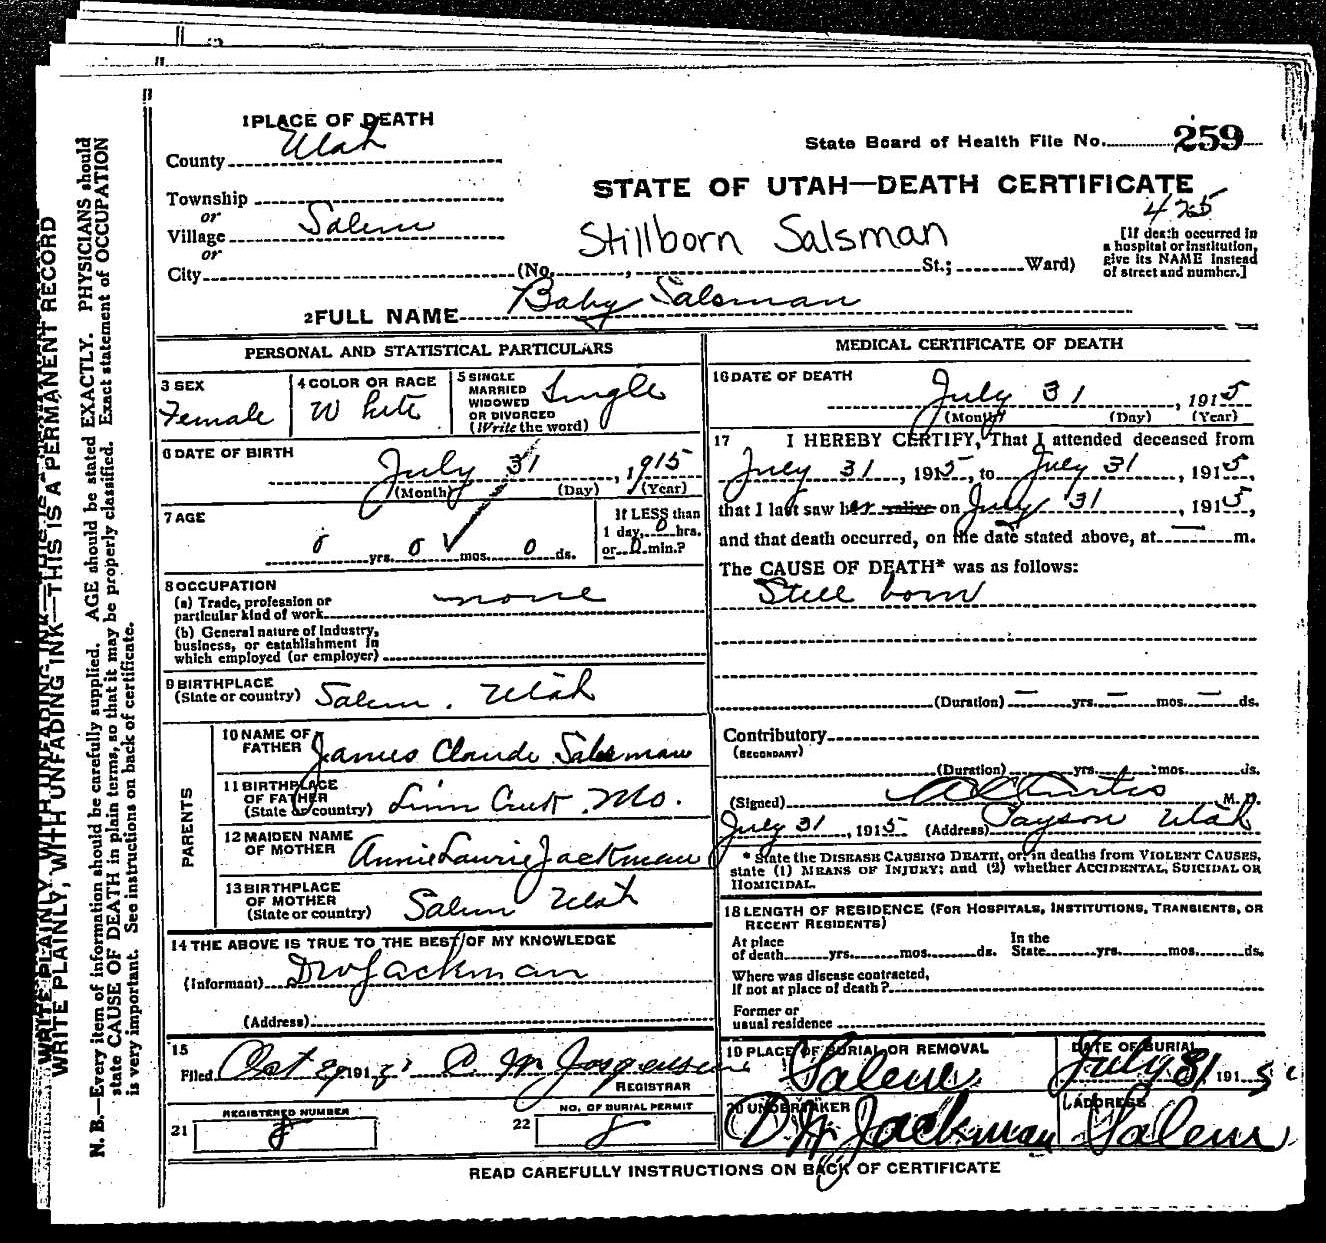 1 PLACE OF DEATH
County Utah
State Board of Health File No. 259
STATE OF UTAH—DEATH CERTIFICATE
Township
or
Village Salem
or
City (No. , St.; Ward)
Stillborn Salsman
[If death occurred in
a hospital or institution,
give its NAME instead
of street and number.]
2 FULL NAME Baby Salsman
PERSONAL AND STATISTICAL PARTICULARS
3 SEX
Female
4 COLOR OR RACE
White
5 SINGLE
MARRIED
WIDOWED
OR DIVORCED
(Write the word)
Single
6 DATE OF BIRTH
July 31, 1915
(Month) (Day) (Year)
7 AGE
0 yrs. 0 mos. 0 ds.
If LESS than
1 day, 0 hrs.
or 0 min.?
8 OCCUPATION
(a) Trade, profession or
particular kind of work none
(b) General nature of Industry,
business, or establishment in
which employed (or employer)
9 BIRTHPLACE
(State or country) Salem. Utah
PARENTS
10 NAME OF
FATHER James Claude Salsman
11 BIRTHPLACE
OF FATHER
(State or country) Linn Creek, Mo.
12 MAIDEN NAME
OF MOTHER Annie Laurie Jackman
13 BIRTHPLACE
OF MOTHER
(State or country) Salem Utah
14 THE ABOVE IS TRUE TO THE BEST OF MY KNOWLEDGE
(Informant) D W Jackman
(Address)
15
Filed Oct 191
REGISTRAR
21 REGISTERED NUMBER
8
22 NO. OF BURIAL PERMIT
8
MEDICAL CERTIFICATE OF DEATH
16 DATE OF DEATH
July 31, 1915
(Month) (Day) (Year)
17 I HEREBY CERTIFY, That I attended deceased from
July 31, 1915, to July 31, 1915,
that I last saw her alive on July 31, 1915,
and that death occurred, on the date stated above, at — m.
The CAUSE OF DEATH* was as follows:
Still born
(Duration) — yrs. — mos. — ds.
Contributory
(SECONDARY)
(Duration) yrs. mos. ds.
(Signed) Curtis M. D.
July 31, 1915 (Address) Payson Utah
* State the DISEASE CAUSING DEATH, or, in deaths from VIOLENT CAUSES,
state (1) MEANS OF INJURY; and (2) whether ACCIDENTAL, SUICIDAL OR
HOMICIDAL.
18 LENGTH OF RESIDENCE (FOR HOSPITALS, INSTITUTIONS, TRANSIENTS, OR
RECENT RESIDENTS)
At place
of death yrs. mos. ds.
In the
State yrs. mos. ds.
Where was disease contracted,
If not at place of death?
Former or
usual residence
19 PLACE OF BURIAL OR REMOVAL
Salem
DATE OF BURIAL
July 31, 1915
20 UNDERTAKER
D W Jackman
ADDRESS
Salem
READ CAREFULLY INSTRUCTIONS ON BACK OF CERTIFICATE
WRITE PLAINLY, WITH UNFADING INK—THIS IS A PERMANENT RECORD
N. B.—Every item of information should be carefully supplied. AGE should be stated EXACTLY. PHYSICIANS should
state CAUSE OF DEATH in plain terms, so that it may be properly classified. Exact statement of OCCUPATION
is very important. See instructions on back of certificate.